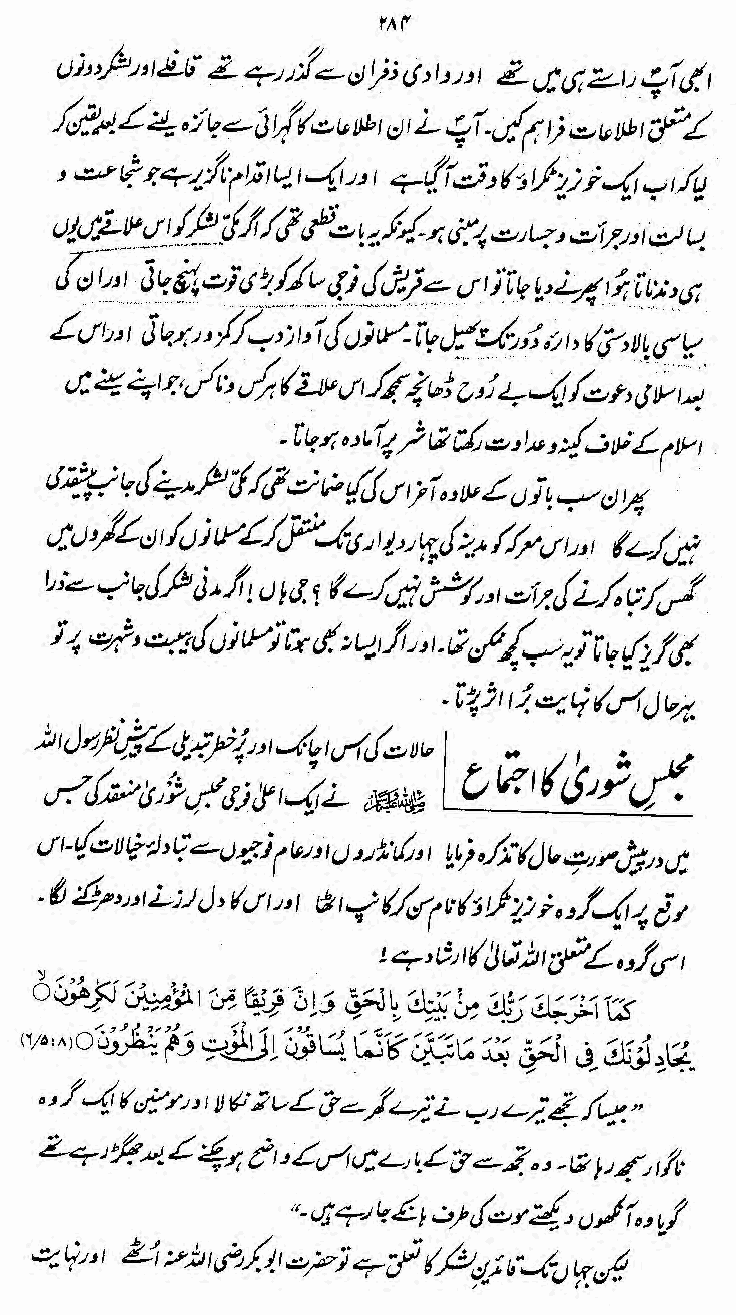 ۲۸۴
ابھی آپؐ راستے ہی میں تھے اور وادی ذفران سے گذر رہے تھے قافلے اور لشکر دونوں
کے متعلق اطلاعات فراہم کیں۔ آپؐ نے ان اطلاعات کا گہرائی سے جائزہ لینے کے بعد یقین کر
لیا کہ اب ایک خونریز ٹکراؤ کا وقت آگیا ہے اور ایک ایسا اقدام ناگزیر ہے جو شجاعت و
بسالت اور جرأت و جسارت پر مبنی ہو۔ کیونکہ یہ بات قطعی تھی کہ اگر مکی لشکر کو اس علاقے میں یوں
ہی دندناتا ہُوا پھرنے دیا جاتا تو اس سے قریش کی فوجی ساکھ کو بڑی قوت پہنچ جاتی اور ان کی
سیاسی بالادستی کا دائرہ دُور تک پھیل جاتا۔ مسلمانوں کی آواز دب کر کمزور ہوجاتی اور اس کے
بعد اسلامی دعوت کو ایک بے رُوح ڈھانچہ سمجھ کر اس علاقے کا ہر کس و ناکس، جو اپنے سینے میں
اسلام کے خلاف کینہ و عداوت رکھتا تھا شر پر آمادہ ہوجاتا۔
پھر ان سب باتوں کے علاوہ آخر اس کی کیا ضمانت تھی کہ مکی لشکر مدینے کی جانب پیشقدمی
نہیں کرے گا اور اس معرکہ کو مدینہ کی چہار دیواری تک منتقل کرکے مسلمانوں کو ان کے گھروں میں
گھس کر تباہ کرنے کی جرأت اور کوشش نہیں کرے گا؟ جی ہاں! اگر مدنی لشکر کی جانب سے ذرا
بھی گریز کیا جاتا تو یہ سب کچھ ممکن تھا۔ اور اگر ایسا نہ بھی ہوتا تو مسلمانوں کی ہیبت و شہرت پر تو
بہرحال اس کا نہایت بُرا اثر پڑتا۔
مجلسِ شوریٰ کا اجتماع
حالات کی اس اچانک اور پُرخطر تبدیلی کے پیشِ نظر رسول اللہ
ﷺ نے ایک اعلیٰ فوجی مجلسِ شُوریٰ منعقد کی جس
میں درپیش صورتِ حال کا تذکرہ فرمایا اور کمانڈروں اور عام فوجیوں سے تبادلۂ خیالات کیا۔ اس
موقع پر ایک گروہ خونریز ٹکراؤ کا نام سن کر کانپ اٹھا اور اس کا دل لرزنے اور دھڑکنے لگا۔
اسی گروہ کے متعلق اللہ تعالیٰ کا ارشاد ہے!
كَمَآ اَخْرَجَكَ رَبُّكَ مِنْۢ بَيْتِكَ بِالْحَقِّ وَ اِنَّ فَرِيْقًا مِّنَ الْمُؤْمِنِيْنَ لَكٰرِهُوْنَ○ۙ
يُجَادِلُوْنَكَ فِى الْحَقِّ بَعْدَ مَاتَبَيَّنَ كَاَنَّمَا يُسَاقُوْنَ اِلَى الْمَوْتِ وَهُمْ يَنْظُرُوْنَ○ (۸ :۶/۵)
”جیسا کہ تجھے تیرے رب نے تیرے گھر سے حق کے ساتھ نکالا اور مومنین کا ایک گروہ
ناگوار سمجھ رہا تھا۔ وہ تجھ سے حق کے بارے میں اس کے واضح ہوچکنے کے بعد جھگڑ رہے تھے
گویا وہ آنکھوں دیکھتے موت کی طرف ہانکے جارہے ہیں۔“
لیکن جہاں تک قائدینِ لشکر کا تعلق ہے تو حضرت ابوبکر رضی اللہ عنہ اُٹھے اور نہایت